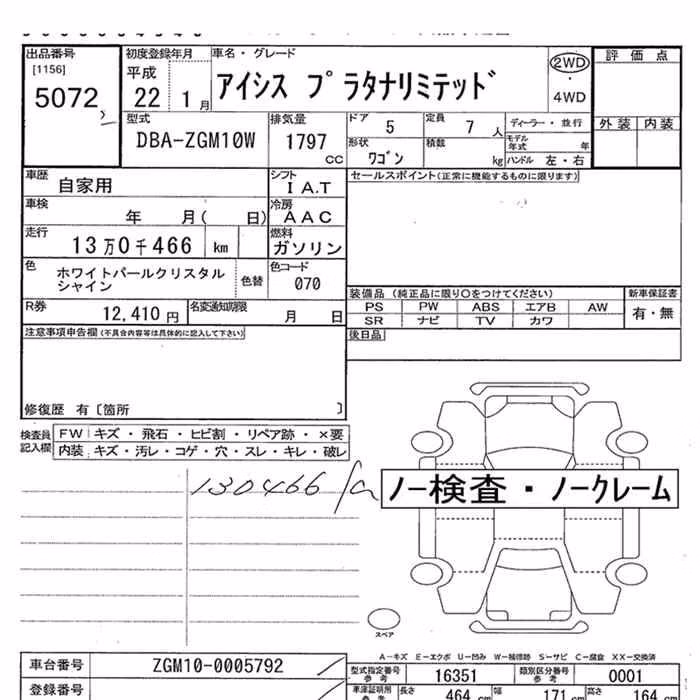 出品番号 初度登録年月 車名・グレード 評価点
[1156] 平成 2WD
5072 22 1月 アイシス プラタナリミテッド ・
4WD
外装 内装
型式 排気量 ドア 5 定員 7人 ディーラー・並行
DBA-ZGM10W 1797 cc 形状 ワゴン 積数 kg モデル年式 年
ハンドル 左・右
車歴 自家用 シフト IA.T セールスポイント(正常に機能するものに限ります)
車検 年 月( 日) 冷房 AAC
走行 13万0千466 km 燃料 ガソリン
色 ホワイトパールクリスタルシャイン 色替 色コード 070
装備品 (純正品に限り○をつけてください) 新車保証書
PS PW ABS エアB AW 有・無
SR ナビ TV カワ
R券 12,410円 名変通知期限 月 日
後日品
注意事項申告欄(不具合内容等は具体的に記入して下さい)
修復歴 有〔箇所 〕
検査員記入欄 FW キズ・飛石・ヒビ割・リペア跡・×要
内装 キズ・汚レ・コゲ・穴・スレ・キレ・破レ
130466
ノー検査・ノークレーム
スペア
A－キズ E－エクボ U－凹み W－補修跡 S－サビ C－腐食 XX－交換済
車台番号 ZGM10-0005792 型式指定番号参考 16351 類別区分番号参考 0001
登録番号 車庫証明用参考 長さ 464 cm 幅 171 cm 高さ 164 cm